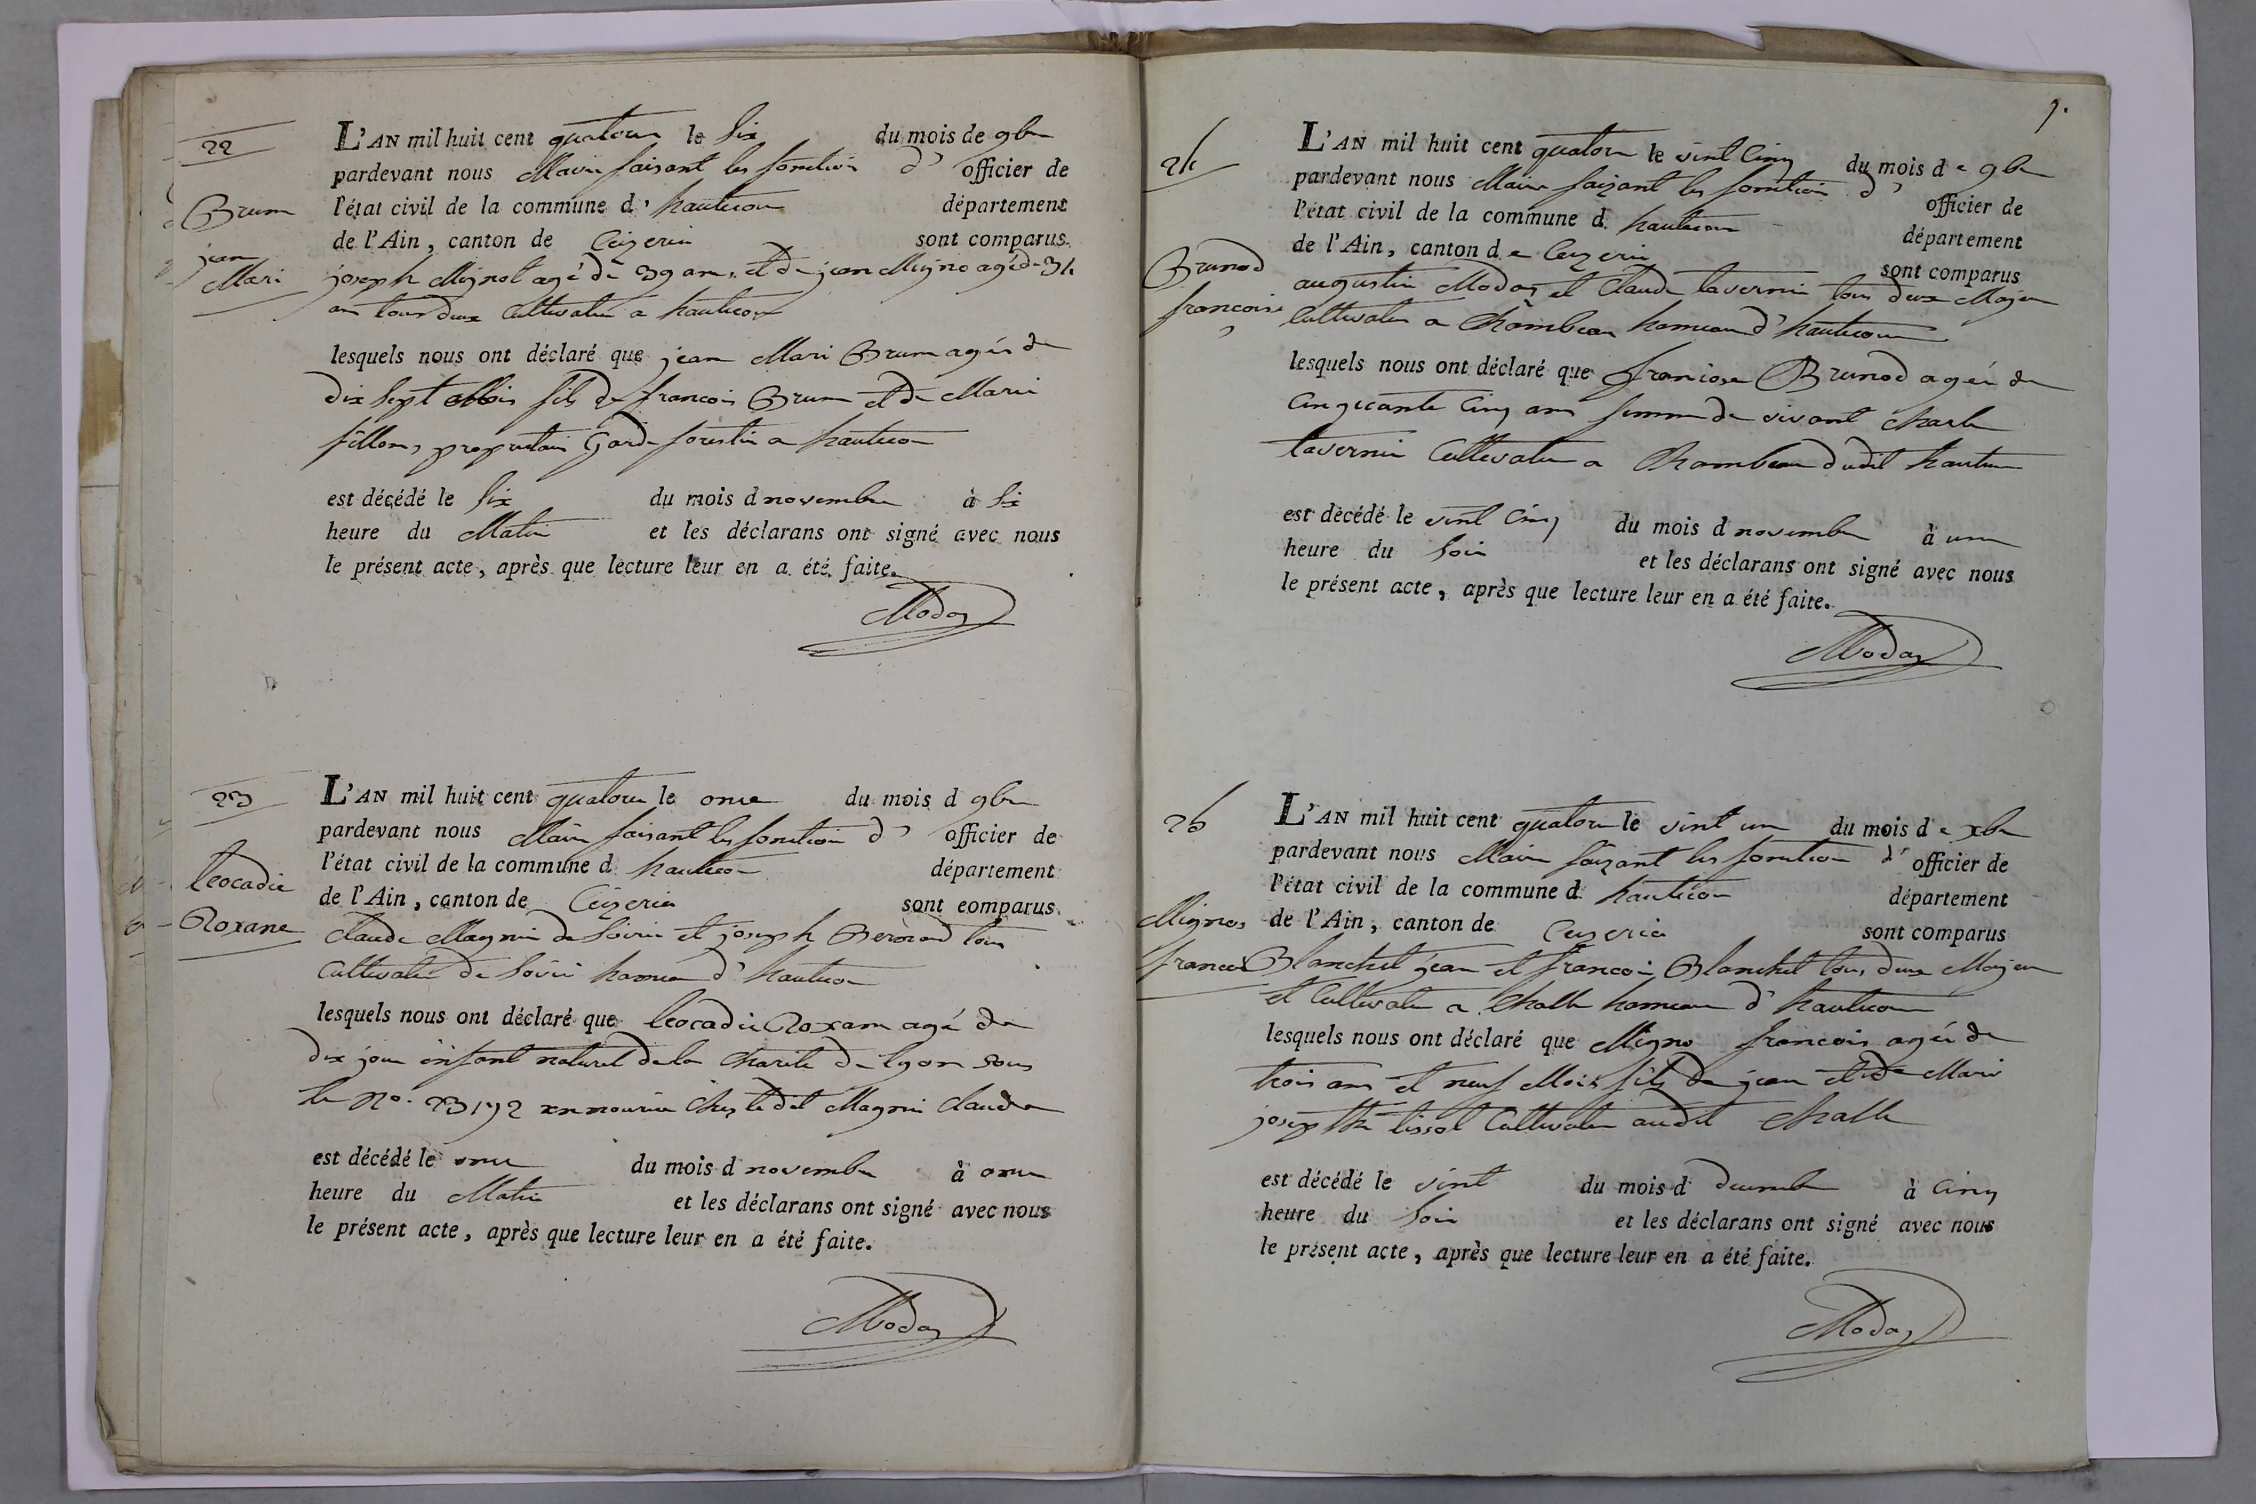 22
Brun
jean
Mari
L'AN mil huit cent quatorze le six du mois de 9bre
pardevant nous Maire faisant les fonction d' officier de
l'état civil de la commune d' hautecour département
de l'Ain, canton de Ceizeria sont comparus
joseph Mignot agé de 39 ans et de jean Migno agé de 34
ans tous deux Cultivateur a hautecour
lesquels nous ont déclaré que jean Mari Brun agés de
dix sept Mois fils de francois Brun et de Marie
fillon, propriétaire Garde forestier a hautecour
est décédé le six du mois d novembre à six
heure du Matin et les déclarans ont signé avec nous
le présent acte, après que lecture leur en a été faite.
Modas
23
leocadie
Roxane
L'AN mil huit cent quatorze le onze du mois d 9bre
pardevant nous Maire faisant les fonction d' officier de
l'état civil de la commune d hautecour département
de l'Ain, canton de Ceizeria sont comparus
Claude Magnin de Soirie et joseph tous
Cultivateur de Soirie hameau d' hautecour
lesquels nous ont déclaré que leocadie Roxane agé de
dix jour enfant naturel de la Charité de lyon sous
le No. 23192 en nourrice chez le dit Magnin Claude
est décédé le onze du mois d novembre à onze
heure du Matin et les déclarans ont signé avec nous
le présent acte, après que lecture leur en a été faite.
Modas
9.
24
Brunod
francoise
L'AN mil huit cent quatorze le vint cinq du mois de 9bre
pardevant nous Maire faisant les fonction d' officier de
l'état civil de la commune d hautecour département
de l'Ain, canton de Ceyzeria sont comparus
augustin Modas et Claude tavernier tous deux Majeur
Cultivateur a Chambeau hameau d' hautecour
lesquels nous ont déclaré que francoise Brunod agée de
cinquante cinq ans femme de vivant Charle
tavernier Cultivateur a Chambeau dudit hautecour
est décédé le vint cinq du mois d novembre à une
heure du soir et les déclarans ont signé avec nous
le présent acte, après que lecture leur en a été faite.
Modas
25
Mignos
francois
L'AN mil huit cent quatorze le vint un du mois de xbre
pardevant nous Maire faisant les fonction d' officier de
l'état civil de la commune d hautecour département
de l'Ain, canton de Ceyzeria sont comparus
Blanchet jean et francois Blanchet tous deux Majeur
et Cultivateur a Challe hameau d' hautecour
lesquels nous ont déclaré que Migno francois agé de
trois ans et neuf Mois fils de jean et de Marie
josephte tissot Cultivateur audit Challe
est décédé le vint du mois d decembre à cinq
heure du soir et les déclarans ont signé avec nous
le présent acte, après que lecture leur en a été faite.
Modas